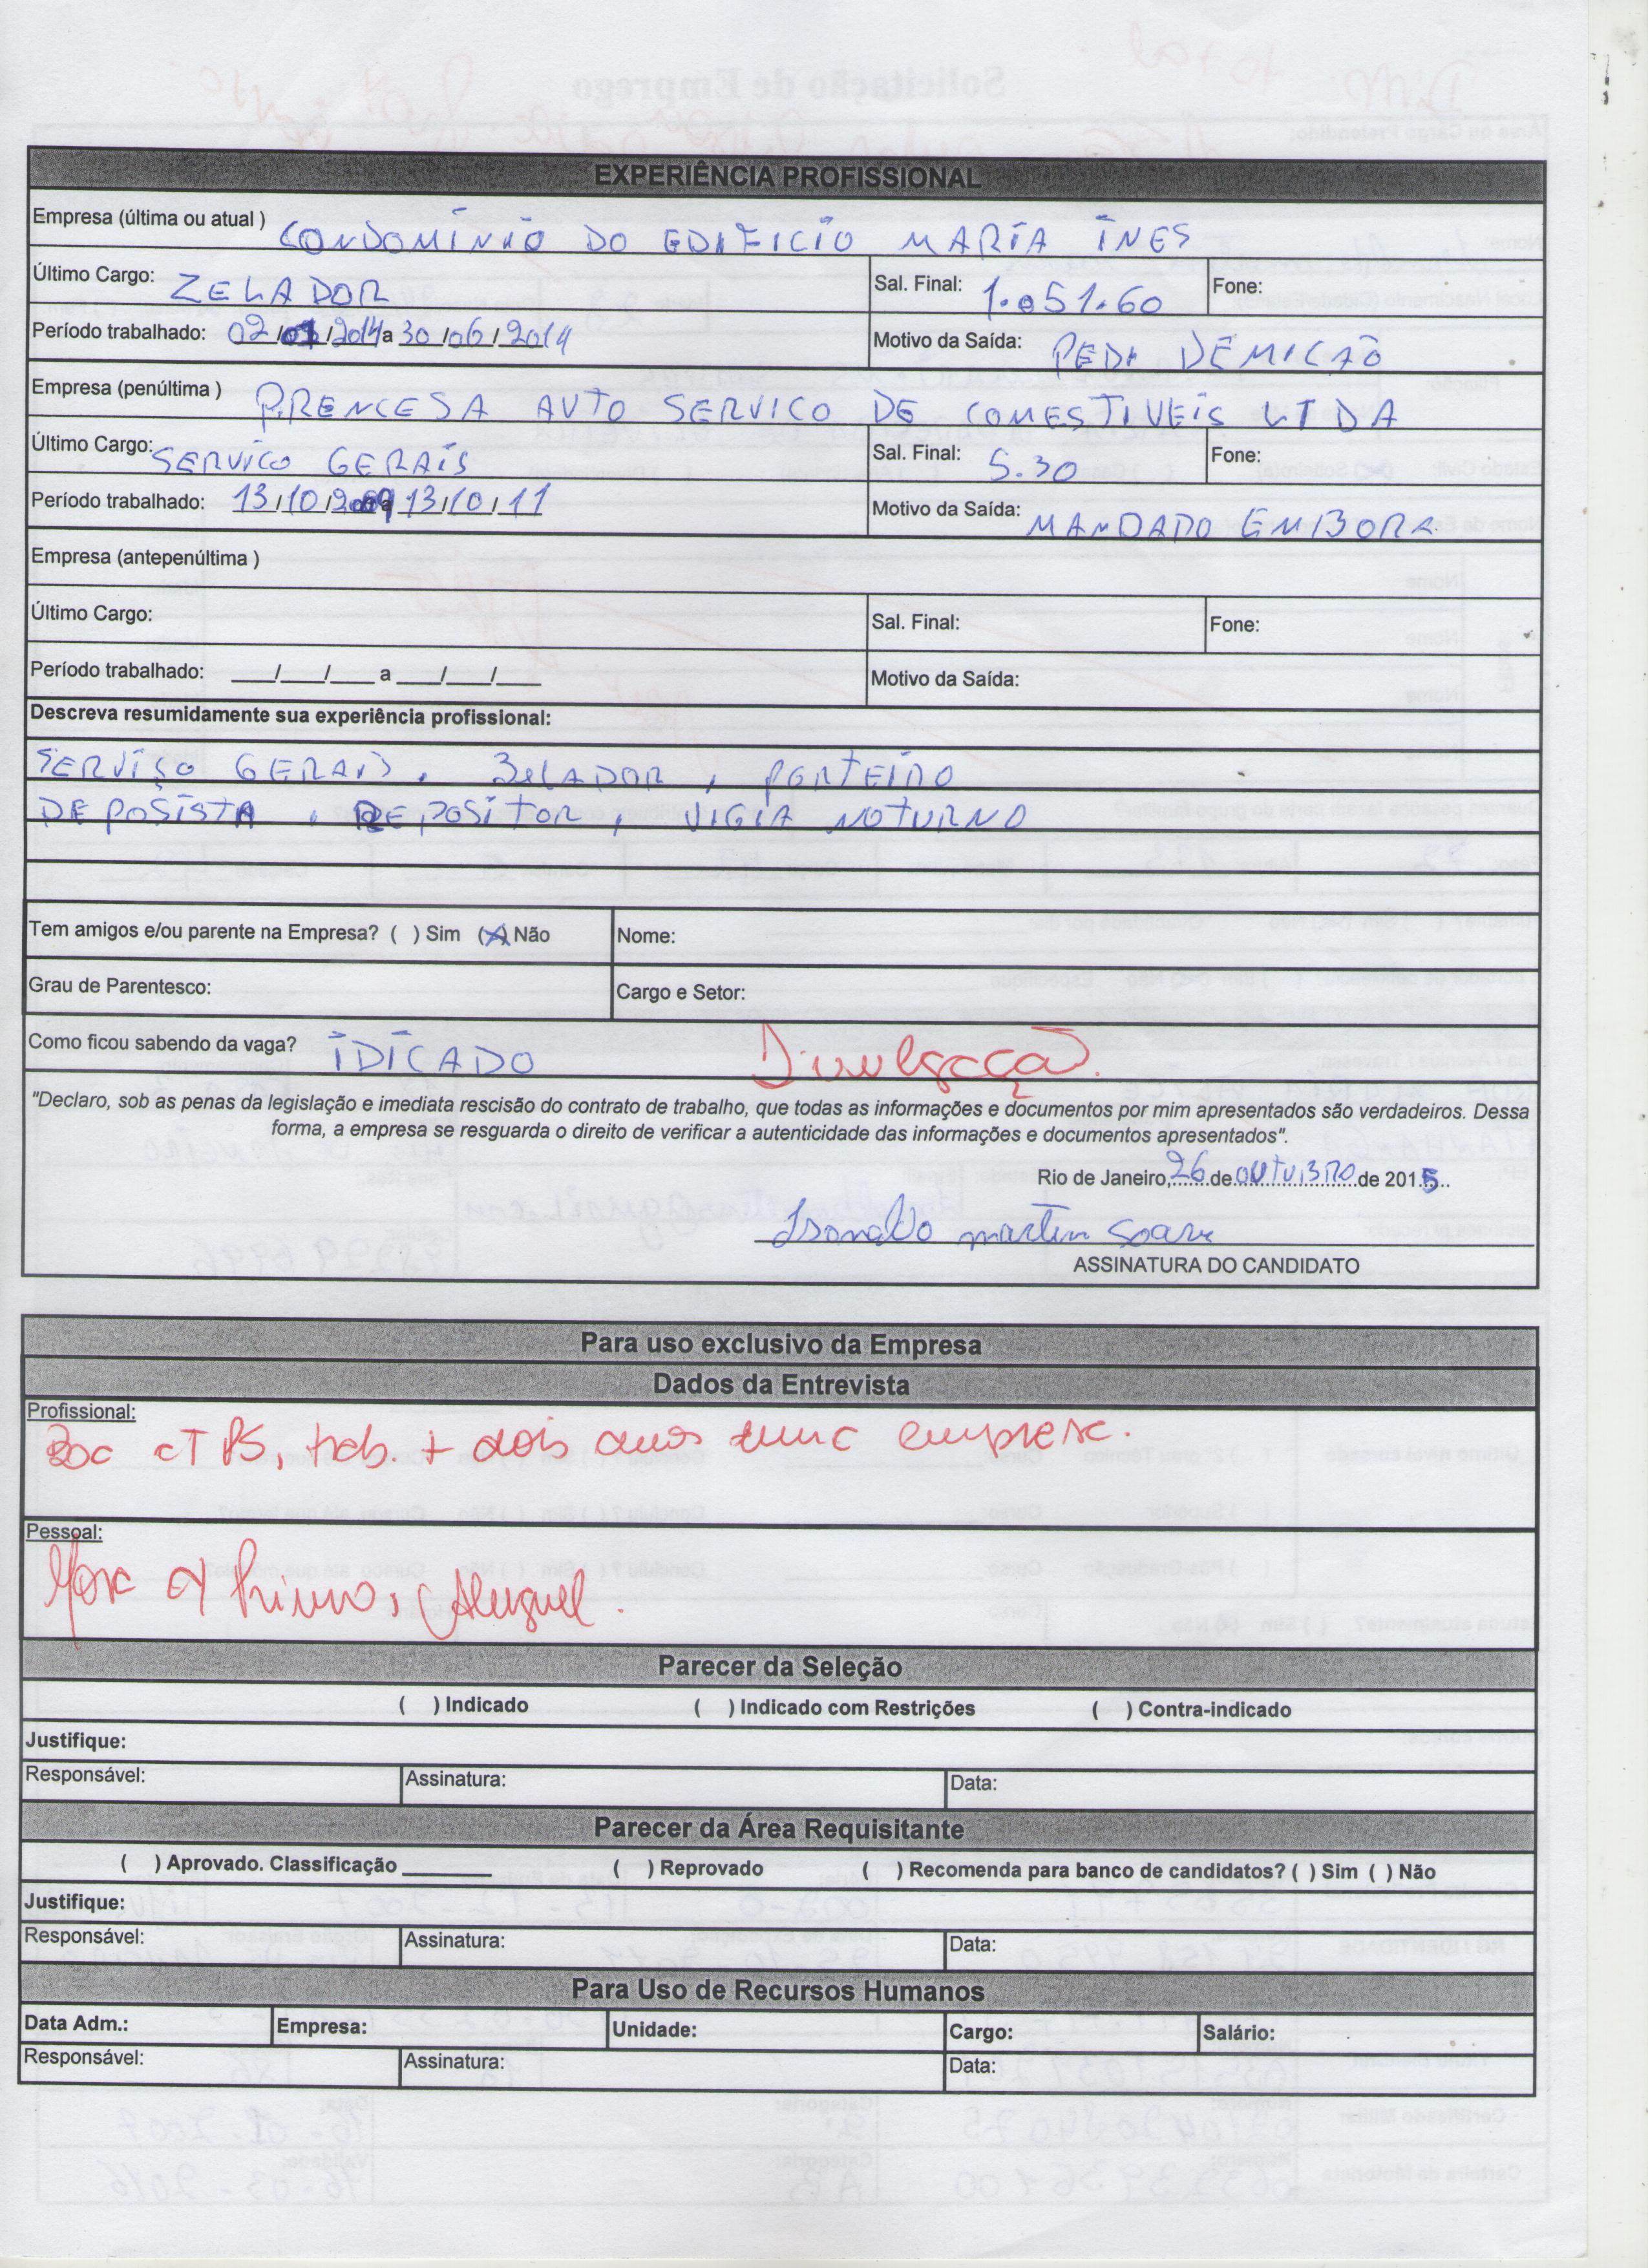 EXPERIÊNCIA PROFISSIONAL
Empresa (última ou atual ) CONDOMÍNIO DO EDIFICIO MARIA INES
Último Cargo: ZELADOR Sal. Final: 1.051.60 Fone:
Período trabalhado: 02/01/2014 a 30/06/2014 Motivo da Saída: PEDI DEMICÃO
Empresa (penúltima ) PRENCESA AUTO SERVICO DE COMESTIVEIS LTDA
Último Cargo: SERVICO GERAIS Sal. Final: 5.30 Fone:
Período trabalhado: 13/10/2009 a 13/10/11 Motivo da Saída: MANDADO EMBORA
Empresa (antepenúltima )
Último Cargo: Sal. Final: Fone:
Período trabalhado: ___/___/___ a ___/___/___ Motivo da Saída:
Descreva resumidamente sua experiência profissional:
SERVIÇO GERAIS, ZELADOR, PORTEIRO
DEPOSISTA, REPOSITOR, VIGIA NOTURNO
Tem amigos e/ou parente na Empresa? ( ) Sim (X) Não Nome:
Grau de Parentesco: Cargo e Setor:
Como ficou sabendo da vaga? IDICADO Divulgação.
"Declaro, sob as penas da legislação e imediata rescisão do contrato de trabalho, que todas as informações e documentos por mim apresentados são verdadeiros. Dessa
forma, a empresa se resguarda o direito de verificar a autenticidade das informações e documentos apresentados".
Rio de Janeiro, 26 de OUTUBRO de 2015
martin Soare
ASSINATURA DO CANDIDATO
Para uso exclusivo da Empresa
Dados da Entrevista
Profissional:
Boa CTPS, trab. + dois anos numa empresa.
Pessoal:
Mora c/ Primo, Aluguel.
Parecer da Seleção
( ) Indicado ( ) Indicado com Restrições ( ) Contra-indicado
Justifique:
Responsável: Assinatura: Data:
Parecer da Área Requisitante
( ) Aprovado. Classificação ________ ( ) Reprovado ( ) Recomenda para banco de candidatos? ( ) Sim ( ) Não
Justifique:
Responsável: Assinatura: Data:
Para Uso de Recursos Humanos
Data Adm.: Empresa: Unidade: Cargo: Salário:
Responsável: Assinatura: Data: